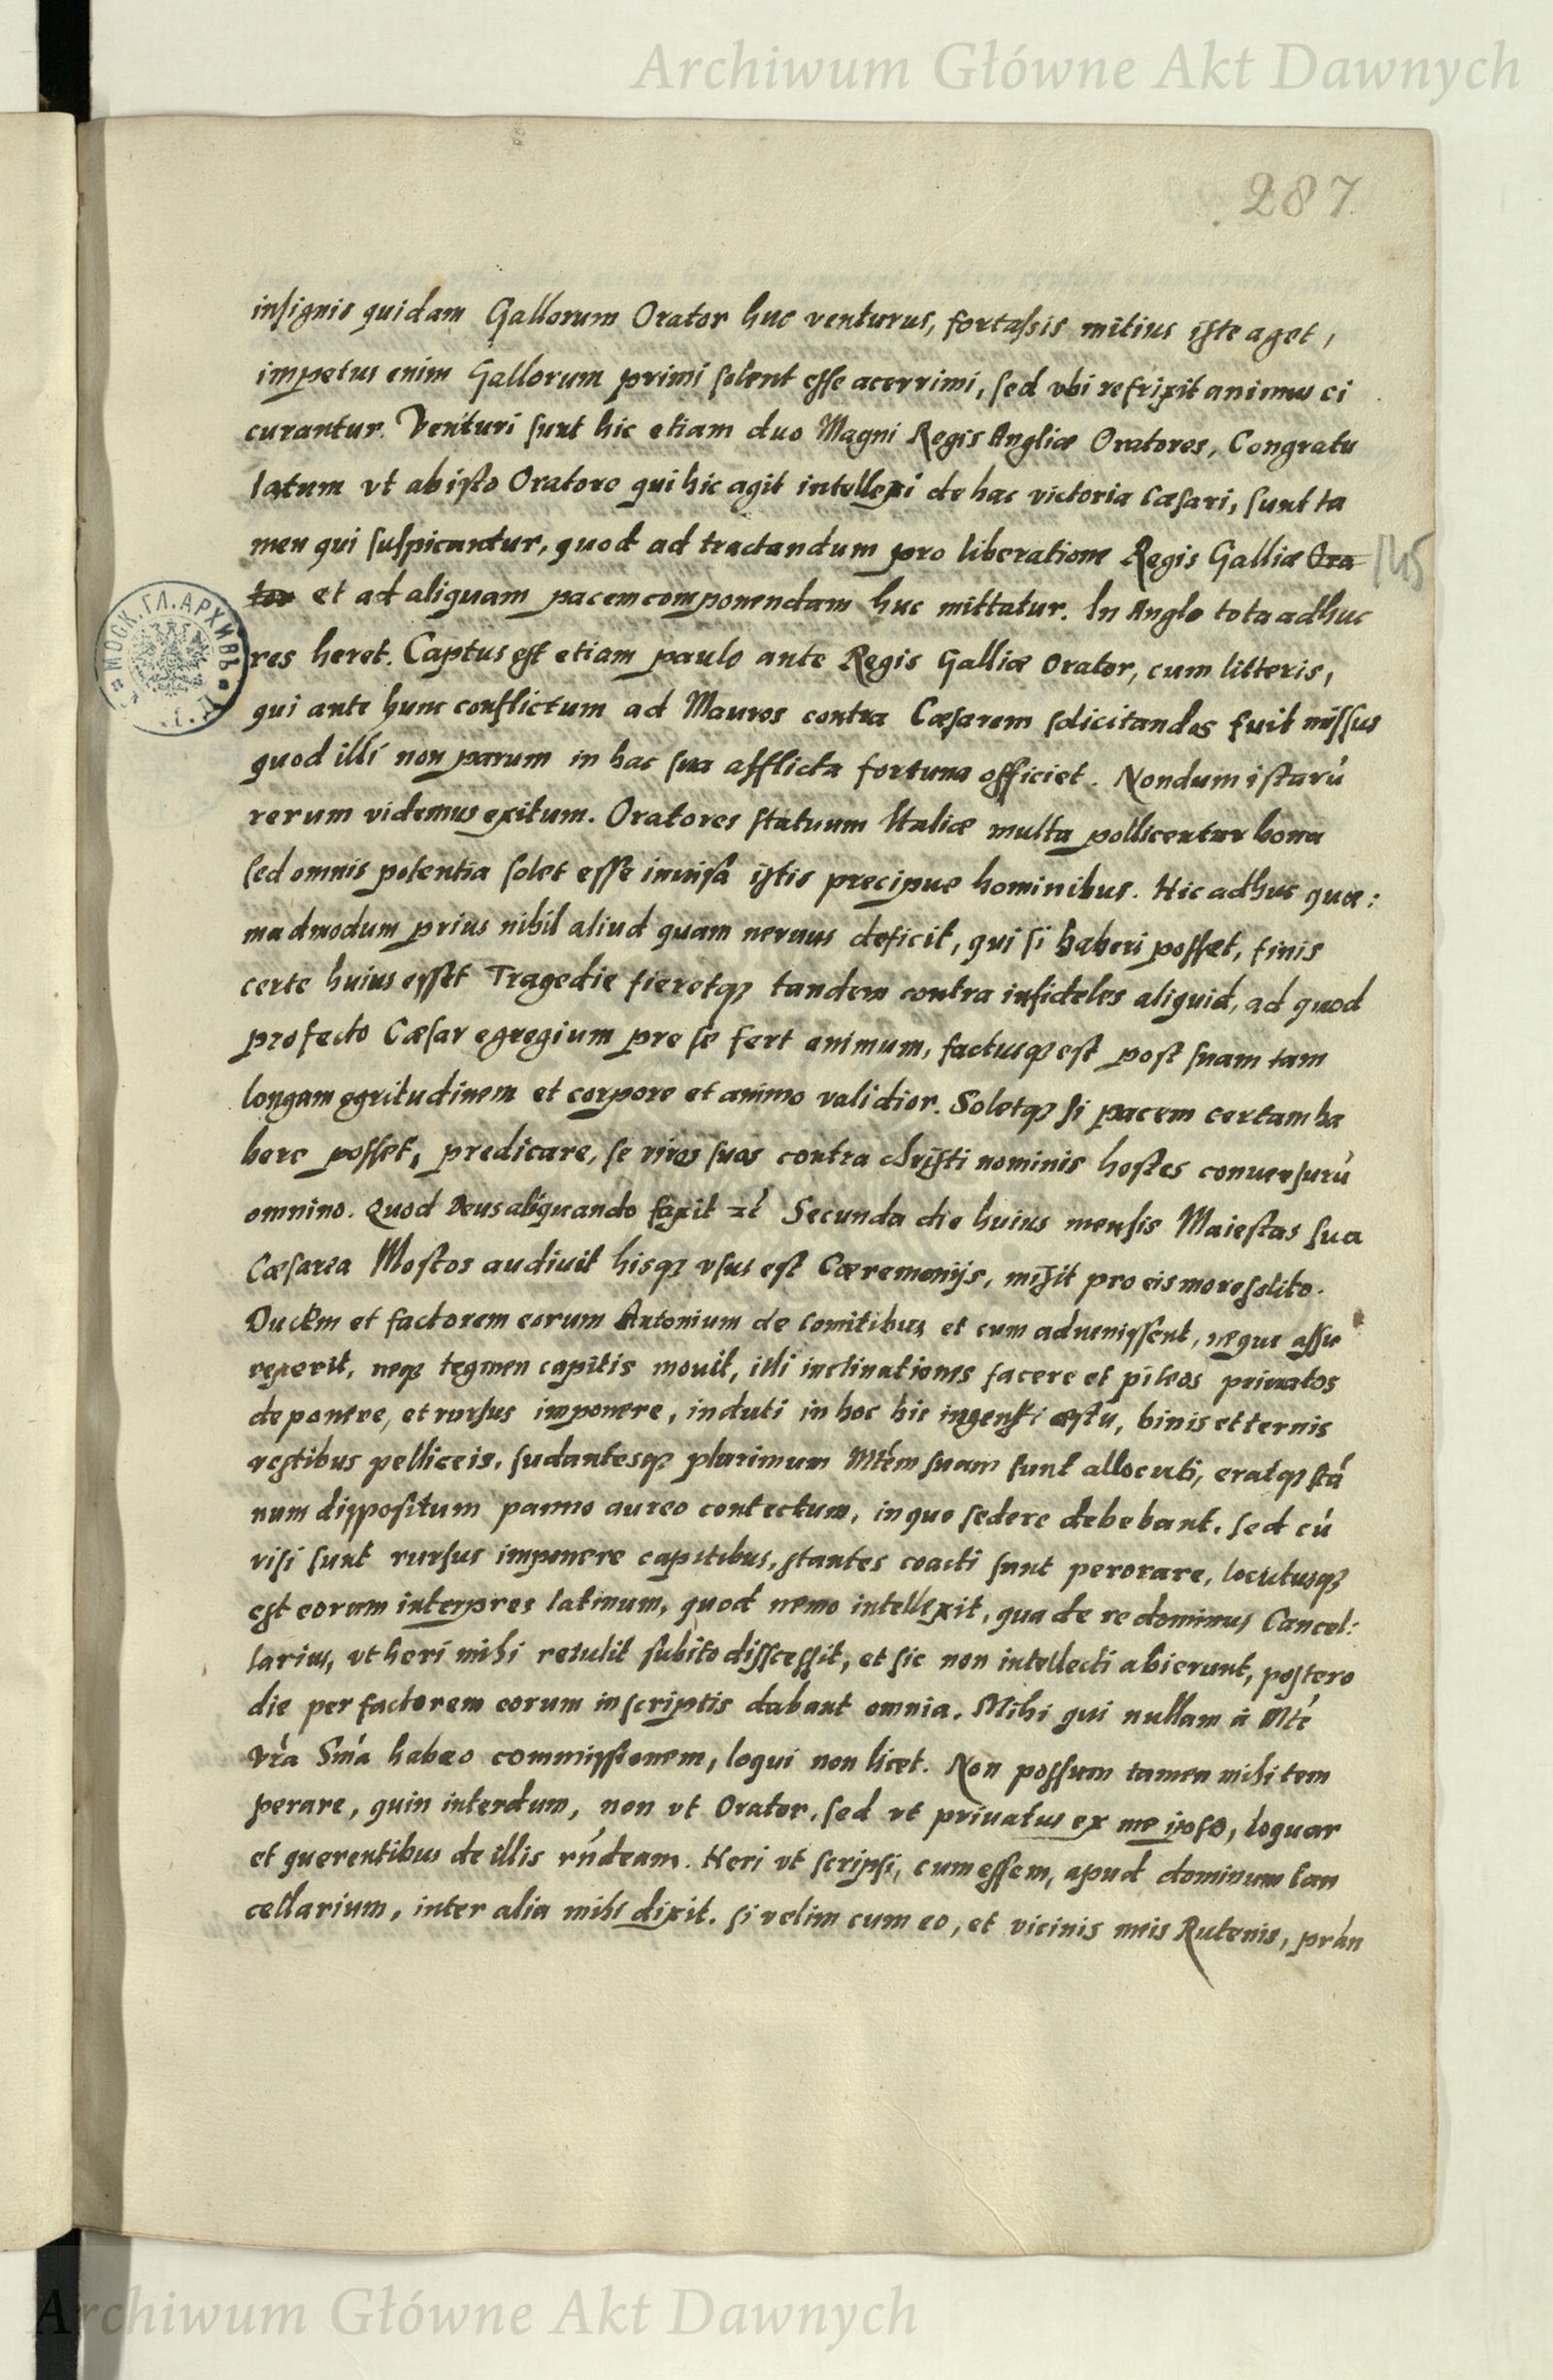 Archiwum Główne Akt Dawnych
287
insignis quidam Gallorum Orator huc venturus, fortassis mitius iste aget,
impetus enim Gallorum primi solent esse acerrimi, sed vbi refrixit animus ci
curantur. Venturi sunt hic etiam duo Magni Regis Angliæ Oratores, Congratu
latum vt ab isto Oratore qui hic agit intellexi de hac victoria Cæsari, sunt ta
men qui suspicantur, quod ad tractandum pro liberatione Regis Galliæ Ora
145
tor et ad aliquam pacem componendam huc mittatur. In Anglo tota adhuc
res heret. Captus est etiam paulo ante Regis Galliæ Orator, cum litteris,
qui ante hunc conflictum ad Mauros contra Cæsarem solicitandos fuit missus
quod illi non parum in hac sua afflicta fortuna officiet. Nondum istarú
rerum videmus exitum. Oratores statuum Italiæ multa pollicentur bona
sed omnis potentia solet esse inuisa istis precipue hominibus. Hic adhuc quæ:
madmodum prius nihil aliud quam neruus deficit, qui si haberi posset, finis
certe huius esset Tragedie fieretqз tandem contra infideles aliquid, ad quod
profecto Cæsar egregium pre se fert animum, factusqз est post suam tam
longam egritudinem et corpore et animo validior. Soletqз si pacem certam ha
bere posset, predicare, se vires suas contra christi nominis hostes conuersurú
omnino. Quod Deus aliquando faxit Secunda die huius mensis Maiestas sua
Cæsarea Moscos audiuit hisqз vsus est Cæremonijs, misit pro eis more solito.
Ducem et factorem eorum Antonium de Comitibus et cum aduenissent, neque assu
rexerit, neqз tegmen capitis mouit, illi inclinationes facere et pileos priuatos
deponere, et rursus imponere, induti in hoc hic ingenti æstu, binis et ternis
vestibus pelliceis, sudantesqз plurimum Mtém suam sunt allocuti, eratqз scá
num dispositum panno aureo contectum, in quo sedere debebant. sed cú
visi sunt rursus imponere capitibus, stantes coacti sunt perorare, locutusqз
est eorum interpres latinum, quod nemo intellexit, qua de re dominus Cancel:
larius, vt heri mihi retulit subito disscessit, et sic non intellecti abierunt, postero
die per factorem eorum in scriptis dabant omnia. Mihi qui nullam à Mté
Vrá Smá habeo commissionem, loqui non licet. Non possum tamen mihi tem
perare, quin interdum, non vt Orator, sed vt priuatus ex me ipso, loquar
et querentibus de illis rńdeam. Heri vt scripsi, cum essem, apud dominum Can
cellarium, inter alia mihi dixit. si velim cum eo, et vicinis meis Rutenis, prán
МОСК. ГЛ. АРХИВЪ
Archiwum Główne Akt Dawnych